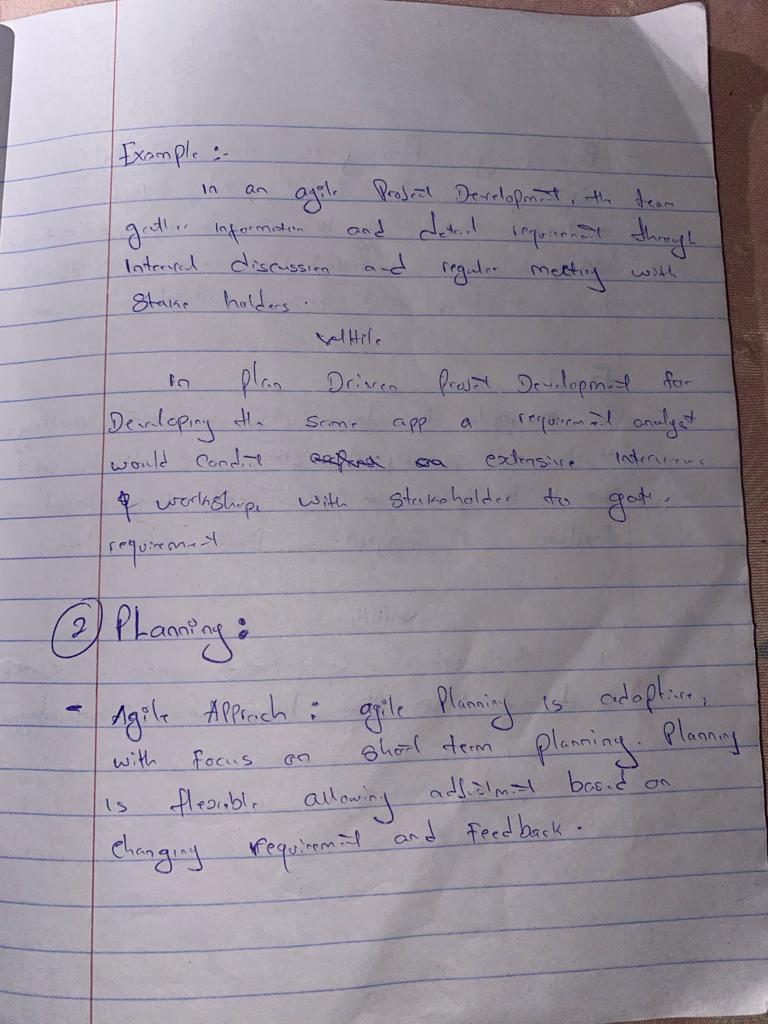 Example :-
In an agile Project Development, the team
gather information and detail requirement through
Interval discussion and regular meeting with
Stake holders.
while
In Plan Driven Project Development for
Developing the same app a requirement analyst
would conduct extensive interviews
& workshops with stakeholder to gather
requirement
2 Planning:
- Agile Approach : agile Planning is adaptive,
with focus on short term planning. Planning
is flexible allowing adjustment based on
changing requirement and feedback.